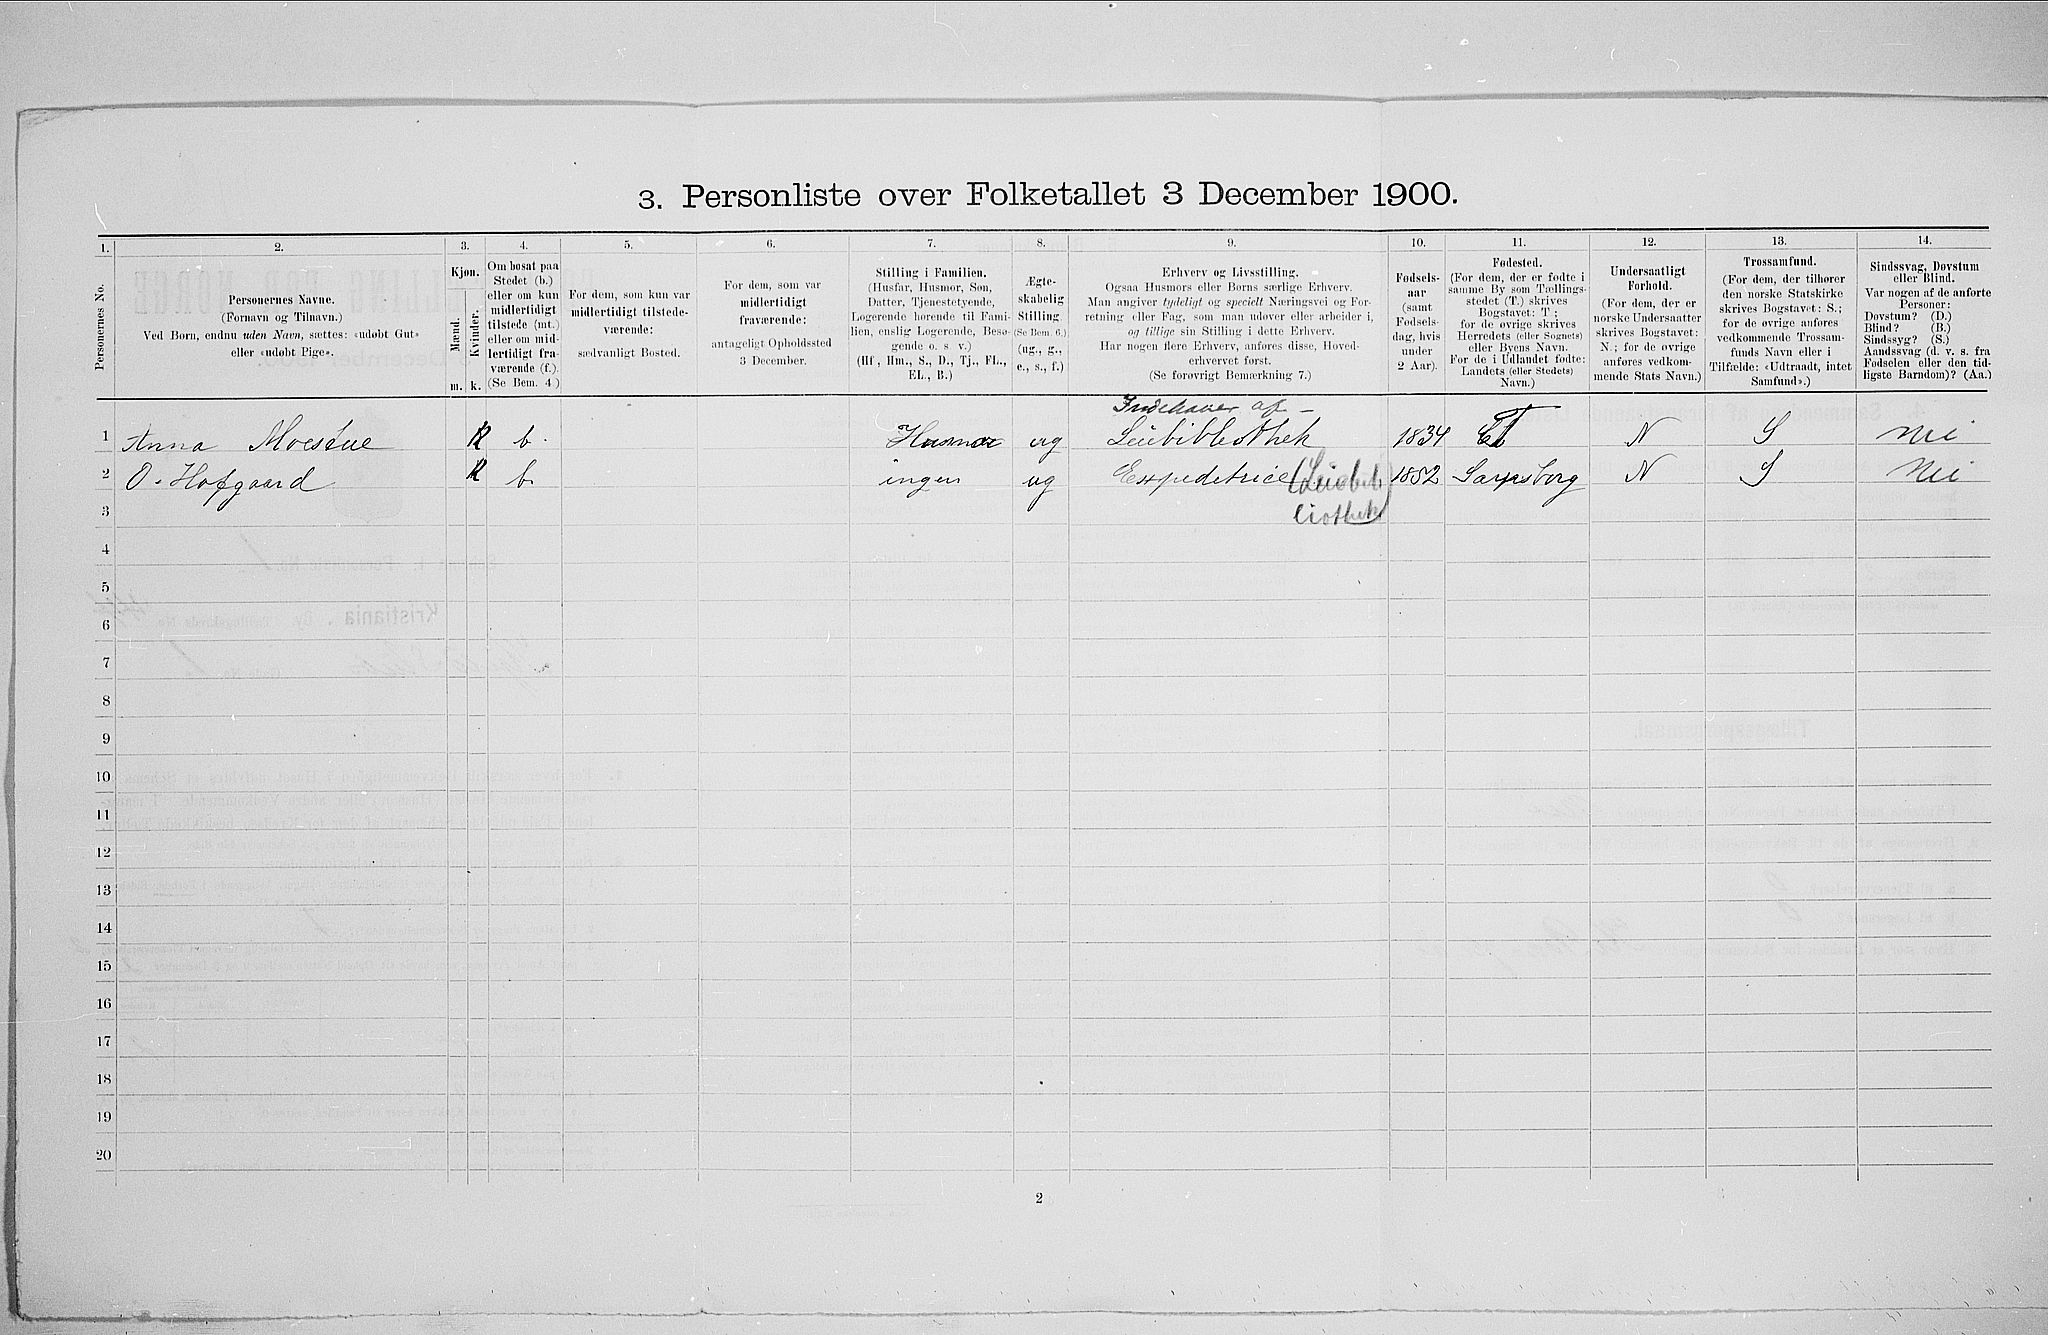 3. Personliste over Folketallet 3 December 1900.
1. 2. 3. 4. 5. 6. 7. 8. 9. 10. 11. 12. 13. 14.
Personernes No.
Personernes Navne.
(Fornavn og Tilnavn.)
Ved Børn, endnu uden Navn, sættes: «udøbt Gut»
eller «udøbt Pige».
Kjøn.
Mænd.
Kvinder.
m. k.
Om bosat paa
Stedet (b.)
eller om kun
midlertidigt
tilstede (mt.)
eller om mid-
lertidigt fra-
værende (f.).
(Se Bem. 4.)
For dem, som kun var
midlertidigt tilstede-
værende:
sædvanligt Bosted.
For dem, som var
midlertidigt
fraværende:
antageligt Opholdssted
3 December.
Stilling i Familien.
(Husfar, Husmor, Søn,
Datter, Tjenestetyende,
Logerende hørende til Fami-
lien, enslig Logerende, Besø-
gende o. s. v.)
(Hf, Hm., S., D., Tj., FL.,
EL., B.)
Ægte-
skabelig
Stilling.
(Se Bem. 6.)
(ug., g.,
e., s., f.)
Erhverv og Livsstilling.
Ogsaa Husmors eller Børns særlige Erhverv.
Man angiver tydeligt og specielt Næringsvei og For-
retning eller Fag, som man udøver eller arbeider i,
og tillige sin Stilling i dette Erhverv.
Har nogen flere Erhverv, anføres disse, Hoved-
erhvervet først.
(Se forøvrigt Bemærkning 7.)
Fødsels-
aar
(samt
Fødsels-
dag, hvis
under
2 Aar).
Fødested.
(For dem, der er fødte i
samme By som Tællings-
stedet (T.) skrives
Bogstavet: T;
for de øvrige skrives
Herredets (eller Sognets)
eller Byens Navn.
For de i Udlandet fødte:
Landets (eller Stedets)
Navn.)
Undersaatligt
Forhold.
(For dem, der er
norske Undersaatter
skrives Bogstavet:
N.; for de øvrige
anføres vedkom-
mende Stats Navn.)
Trossamfund.
(For dem, der tilhører
den norske Statskirke
skrives Bogstavet: S.;
for de øvrige anføres
vedkommende Trossam-
funds Navn eller i
Tilfælde: «Udtraadt, intet
Samfund».)
Sindssvag, Døvstum
eller Blind.
Var nogen af de anførte
Personer:
Døvstum? (D.)
Blind? (B.)
Sindssyg? (S.)
Aandssvag (d. v. s. fra
Fødselen eller den tid-
ligste Barndom)? (Aa.)
Indehaver af
1 Anna Moestue k b. Husmor ug Leiebibliothek 1834 T N S Nei
2 O. Hofgaard k b. ingen ug Expeditrice (Leiebib 1852 Sarpsborg N S Nei
liothek)
3
4
5
6
7
8
9
10
11
12
13
14
15
16
17
18
19
20
2